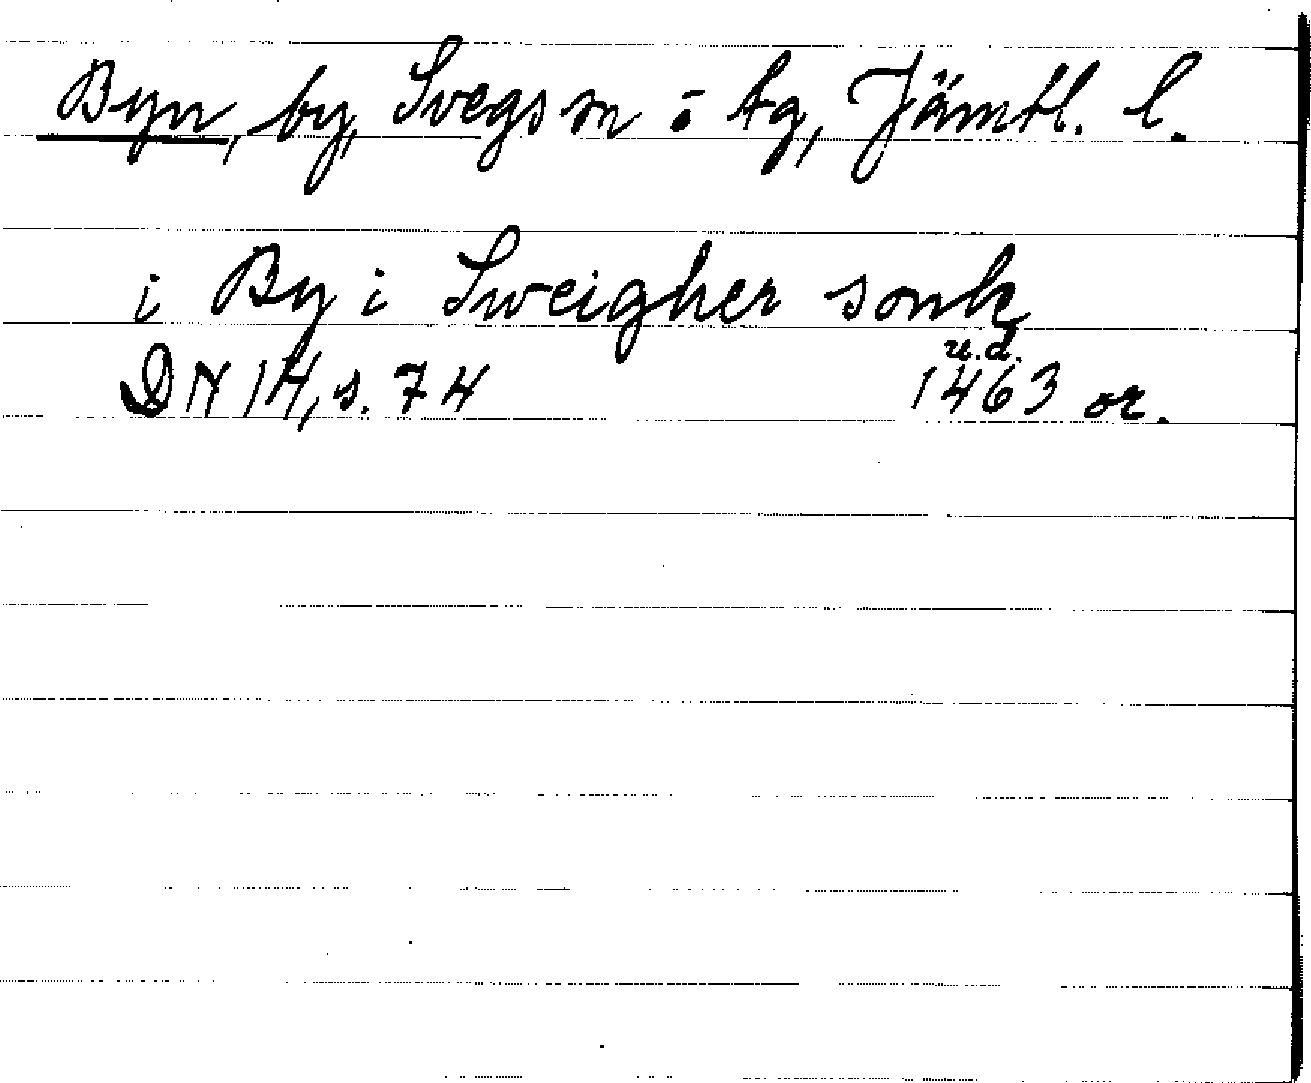 Byn, by, Svegs sn o tg, Jämtl. l.
i By i Sweigher sonk
u.d.
DN 14, s. 74 1463 or.